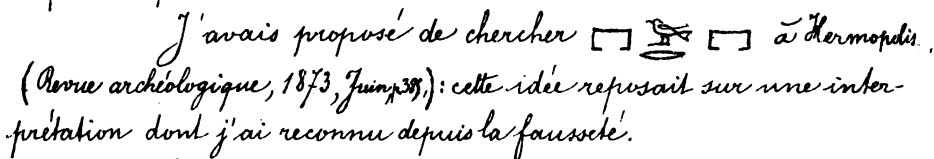 J'avais proposé de chercher 𓉐 𓅬 𓂋 𓉐 à Hermopolis.
(Revue archéologique, 1873, Juin, p. ): cette idée reposait sur une inter-
prétation dont j'ai reconnu depuis la fausseté.